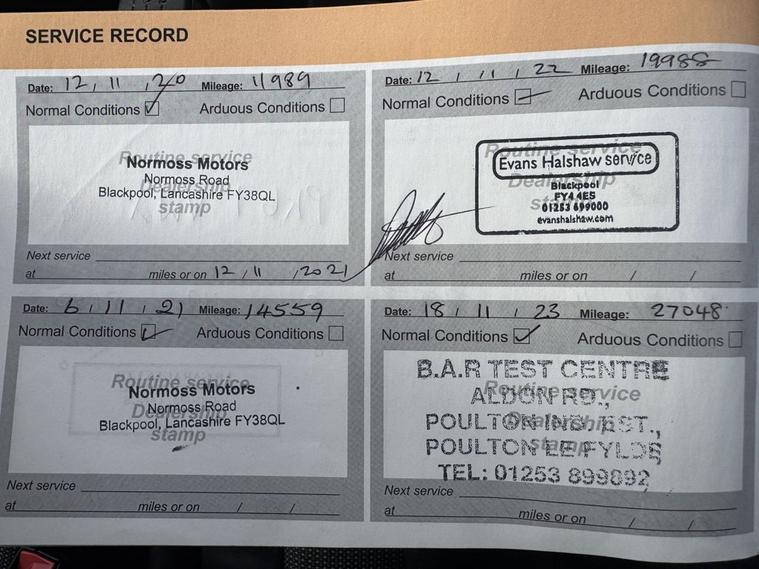 SERVICE RECORD
Date: 12 / 11 / 20 Mileage: 11989
Normal Conditions Arduous Conditions
Routine service
Dealership
stamp
Normoss Motors
Normoss Road
Blackpool, Lancashire FY38QL
Next service
at miles or on 12 / 11 / 2021
Date: 12 / 11 / 22 Mileage: 19988
Normal Conditions Arduous Conditions
Routine service
Dealership
stamp
Evans Halshaw service
Blackpool
FY4 4ES
01253 699000
evanshalshaw.com
Next service
at miles or on / /
Date: 6 / 11 / 21 Mileage: 14559
Normal Conditions Arduous Conditions
Routine service
Dealership
stamp
Normoss Motors
Normoss Road
Blackpool, Lancashire FY38QL
Next service
at miles or on / /
Date: 18 / 11 / 23 Mileage: 27048
Normal Conditions Arduous Conditions
Routine service
Dealership
stamp
B.A.R TEST CENTRE
ALDON RD.,
POULTON IND. EST.,
POULTON LE FYLDE
TEL: 01253 899892
Next service
at miles or on / /